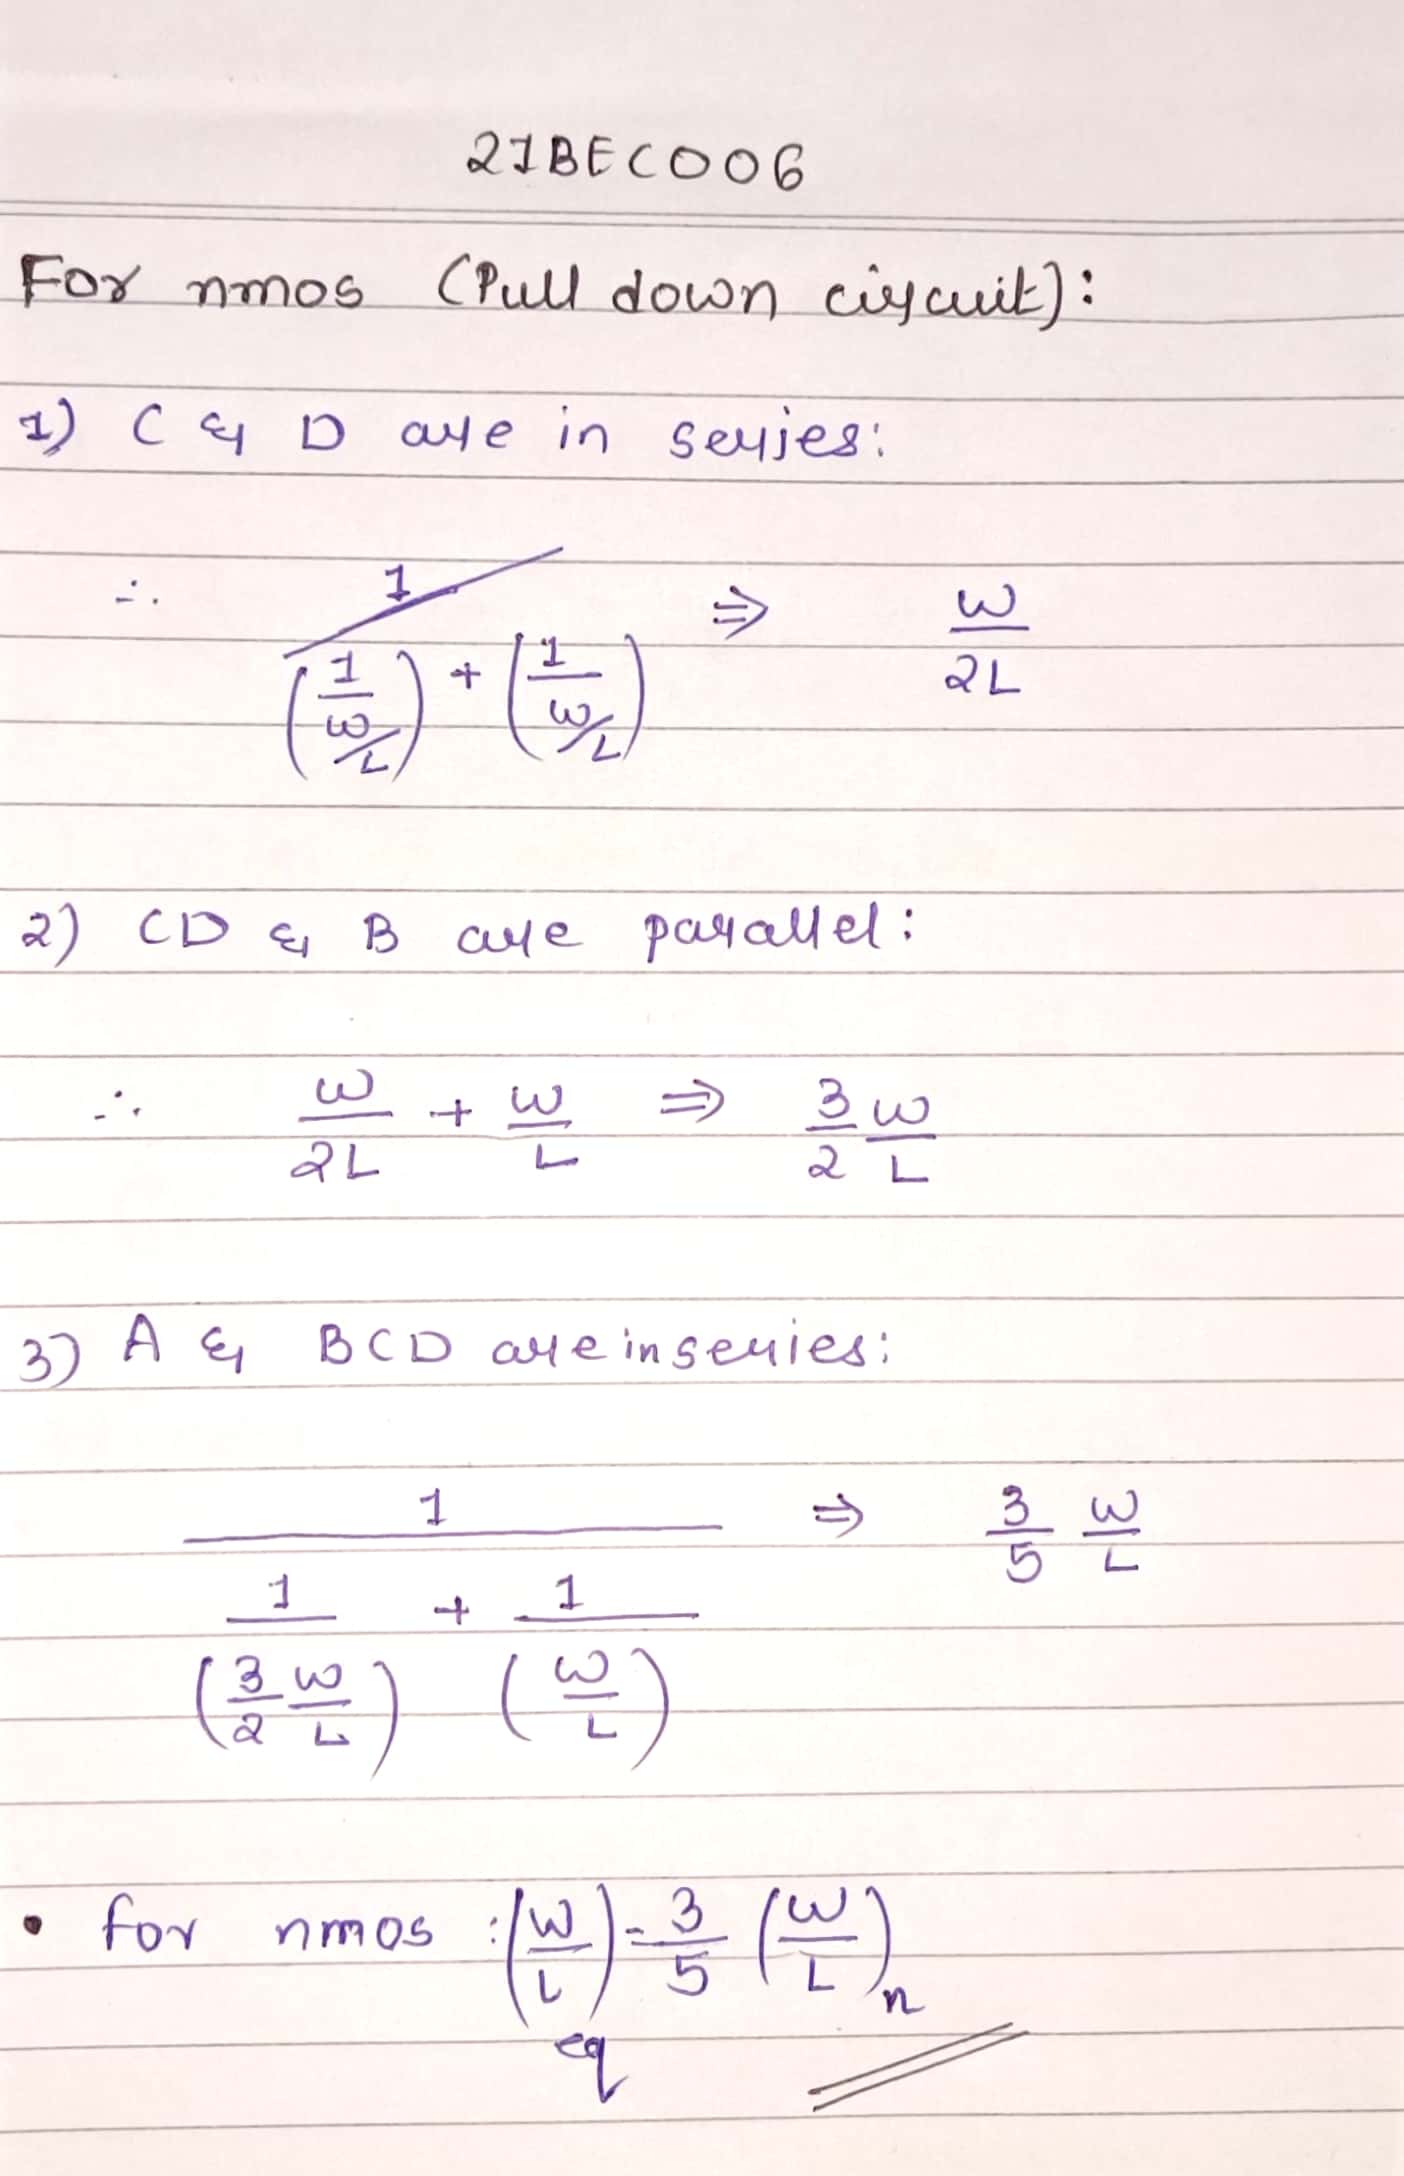 21BEC006
For nmos (Pull down circuit):
1) C & D are in series:
∴ 1 / ((1/(W/L)) + (1/(W/L))) ⇒ W/2L
2) CD & B are parallel:
∴ W/2L + W/L ⇒ 3/2 W/L
3) A & BCD are in series:
1 / (1/(3/2 W/L) + 1/(W/L)) ⇒ 3/5 W/L
• for nmos : (W/L)eq = 3/5 (W/L)n